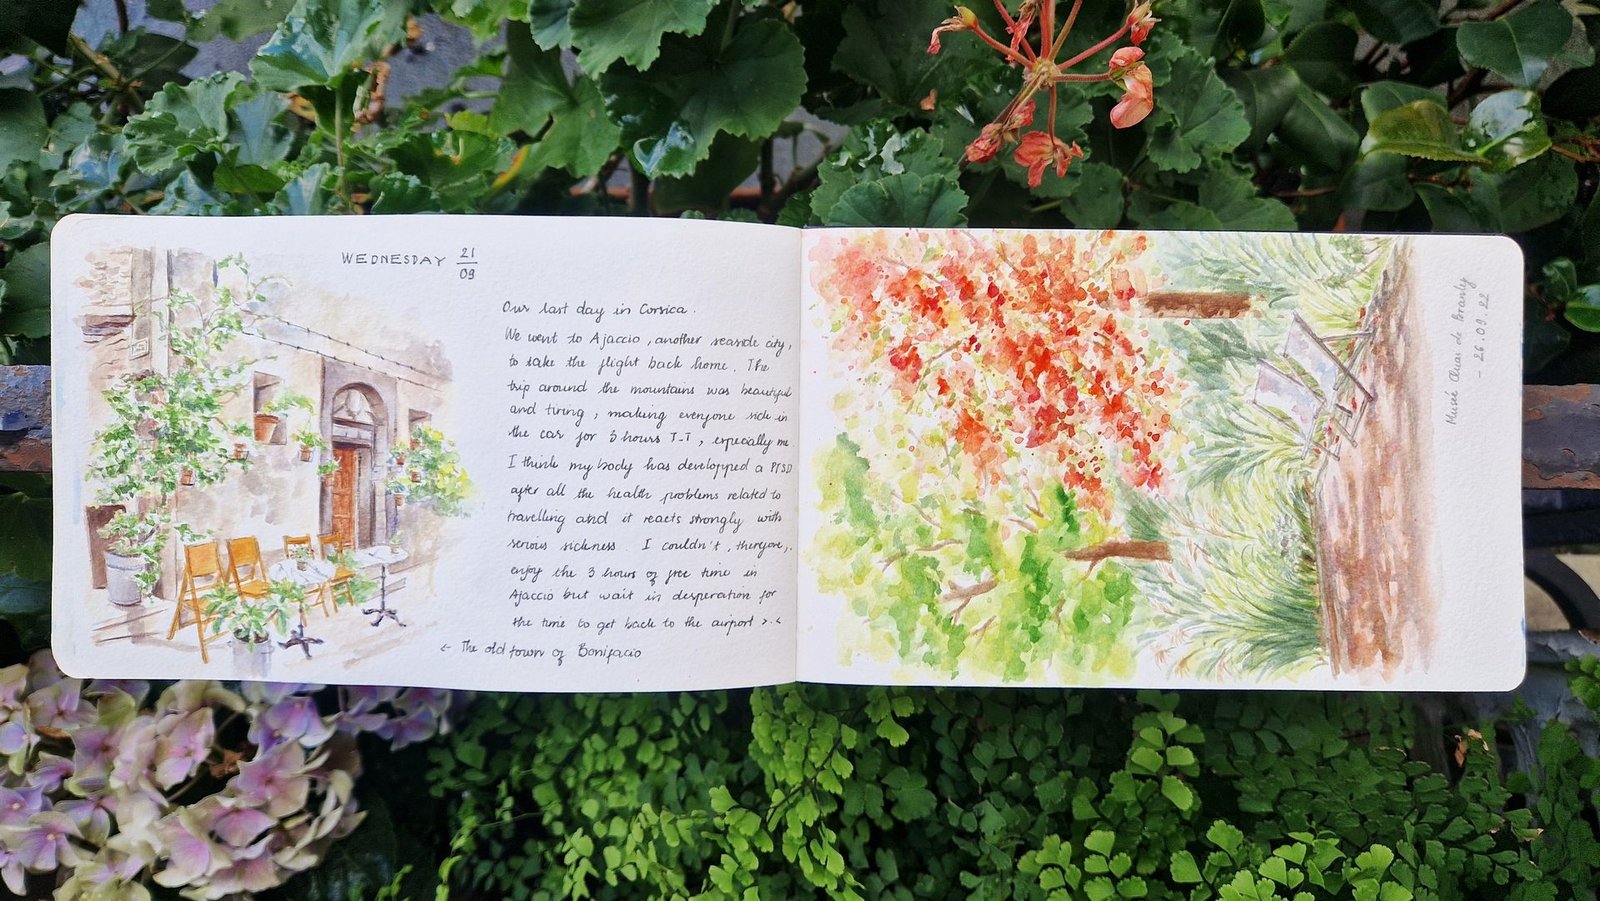 WEDNESDAY 21/09
Our last day in Corsica.
We went to Ajaccio, another seaside city,
to take the flight back home. The
trip around the mountains was beautiful
and tiring, making everyone sick in
the car for 3 hours T-T, especially me
I think my body has developped a PTSD
after all the health problems related to
travelling and it reacts strongly with
serious sickness. I couldn't, therefore,
enjoy the 3 hours of free time in
Ajaccio but wait in desperation for
the time to get back to the airport >.<
← The old town of Bonifacio
Musée Quai de Branly
- 26.09.22